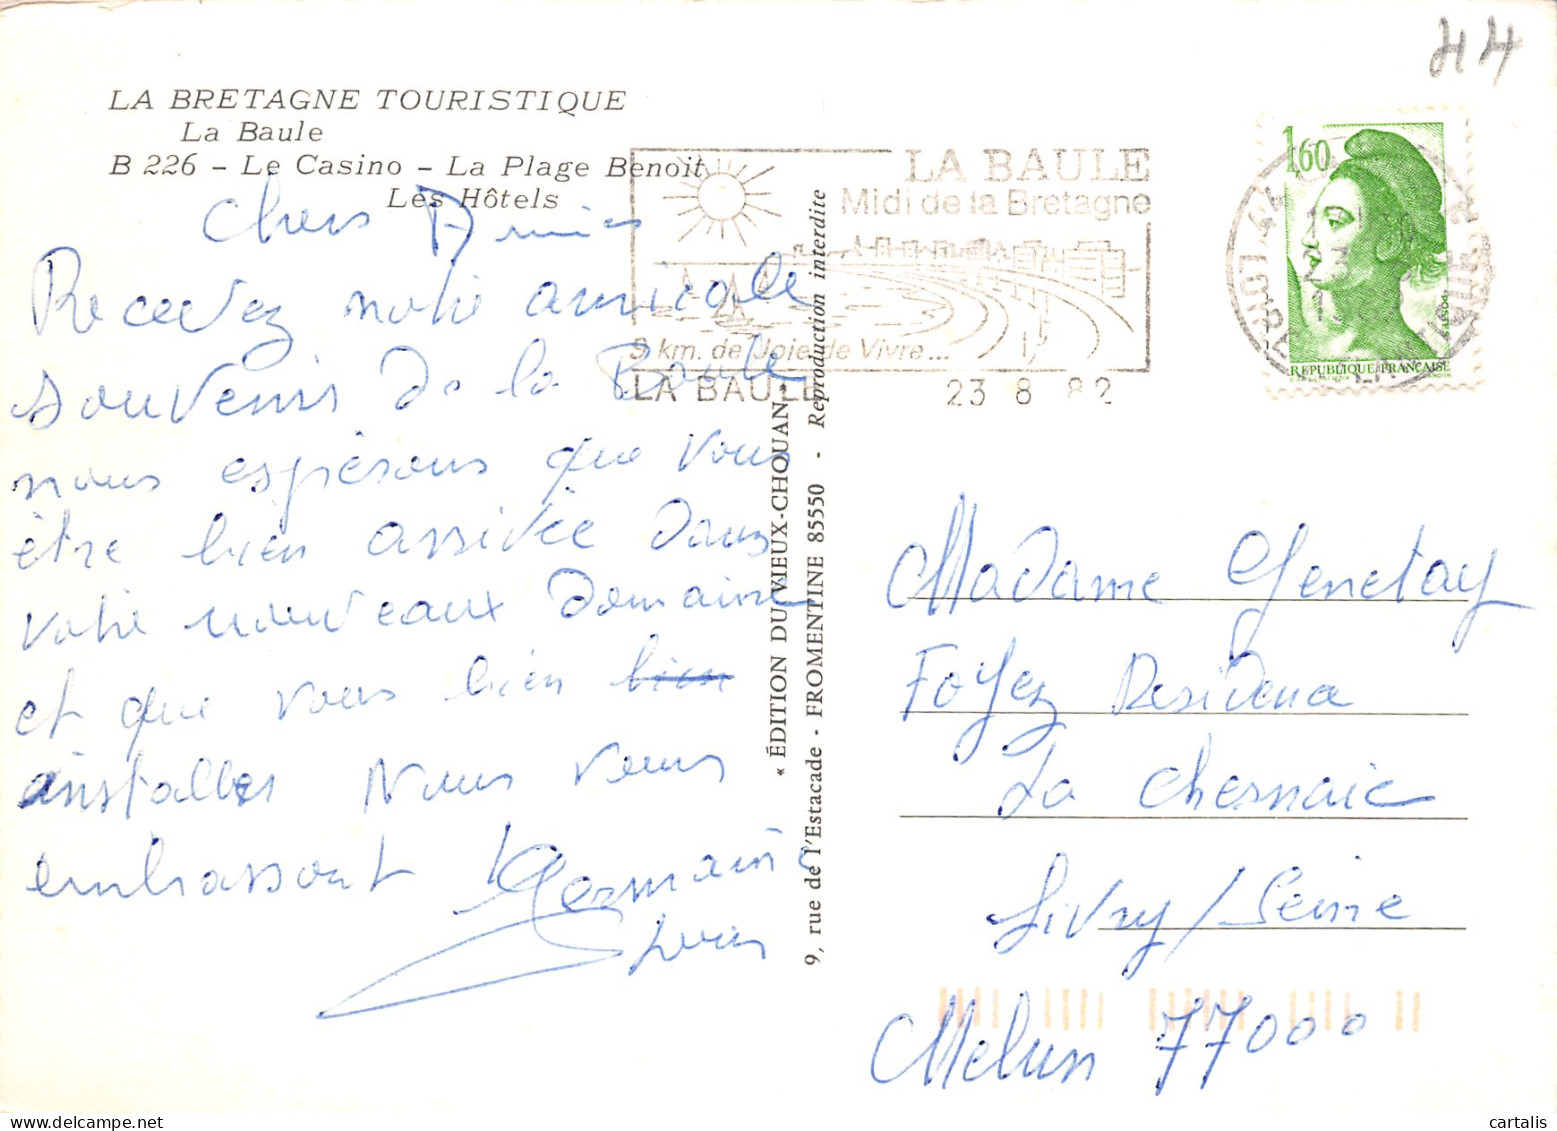 44
LA BRETAGNE TOURISTIQUE
La Baule
B 226 - Le Casino - La Plage Benoit
Les Hôtels
LA BAULE
Midi de la Bretagne
9 km. de Joie de Vivre...
LA BAULE 23 8 82
44 LOIRE ATLANTIQUE
1,60
REPUBLIQUE FRANÇAISE
Chers Amies
Recevez notre amicale
souvenir de la Baule
nous espérons que vous
être bien arrivée dans
votre nouveaux Domaine
et que vous bien bien
installer Nous vous
embrassont Germaine
« ÉDITION DU VIEUX-CHOUAN
9, rue de l'Estacade - FROMENTINE 85550 - Reproduction interdite
Madame Genetay
Foyez Residence
La Chesnaie
Livry/Seine
Melun 77000
cartalis